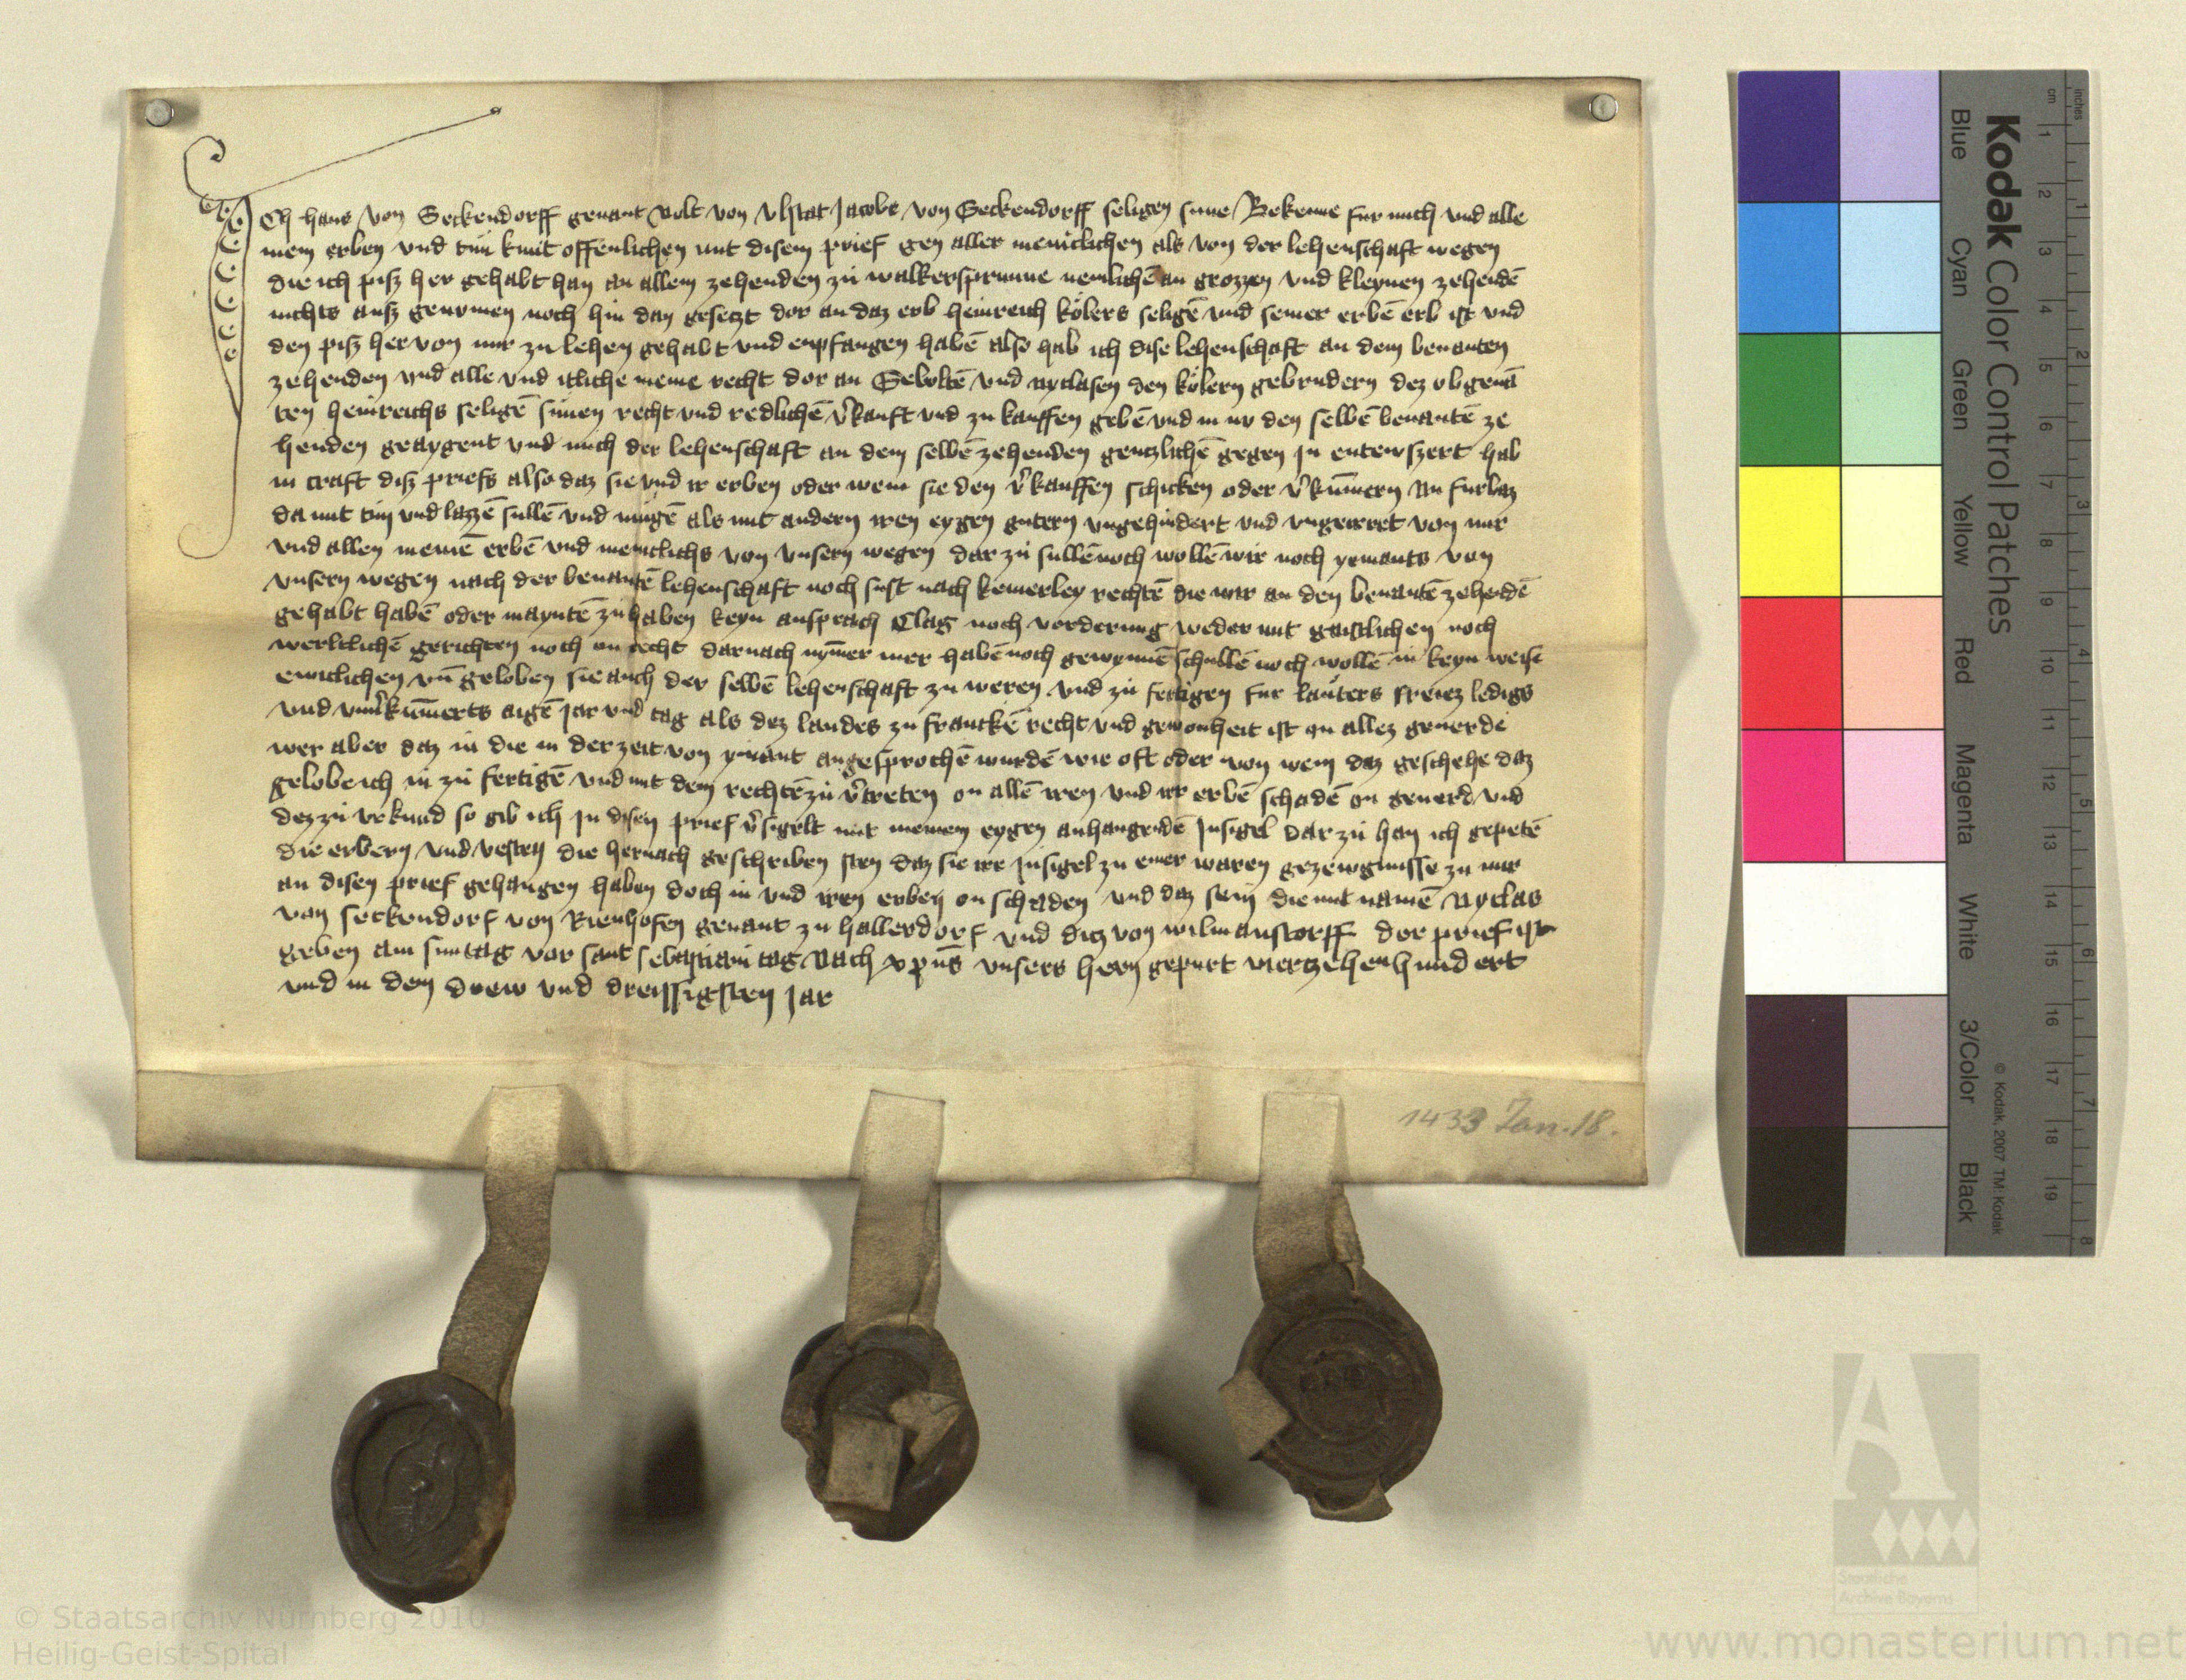 Ich hans von Seckendorff genant Nolt von Vlstat Jacobs von Seckendorff seligen sune Bekenne fur mich vnd alle
mein erben vnd tün kunt offenlichen mit disem prief gen aller meniclichen als von der lehenschaft wegen
die ich pisz her gehabt han an allem zehenden zü walkersprunne nemlichē an grozzen vnd kleynen zehendē
nichts ausz genumen noch hin dan gesetzt dor an daz erb heinreich kölers seligē vnd seiner erbē erb ist vnd
den pisz her von mir zu lehen gehabt vnd enpfangen habē also hab ich dise lehenschaft an dem benanten
zehenden vnd alle vnd itliche meine recht dor an Seboltē vnd nyclasen den kölern gebrudern dez obgenā
ten heinreichs seligē sünen recht vnd redlichē v̓kauft vnd zu kauffen gebē vnd in nv den selbē benantē ze
henden geaygent vnd mich der lehenschaft an dem selbē zehenden gentzlichē gegen jn entewszert hab
in craft disz priefs also daz sie vnd ir erben oder wem sie den v̓kauffen schicken oder v̓kūmern nu furbaz
da mit tün vnd lazzē sullē vnd mügē als mit andern iren eygen gutern vngehindert vnd vngeirret von mir
vnd allen meinē erbē vnd meniclichs von vnsern wegen dar zü sullē noch wollē wir noch yemants von
vnsern wegen nach der benantē lehenschaft noch sust nach keinerley rechtē die wir an den benantē zehendē
gehabt habē oder mayntē zu haben keyn ansprach Clag noch vorderung weder mit gaistlichen noch
werltlichē gerichten noch on recht darnach nym̄er mer habē noch gewynnē schullē noch wollē in keyn weise
ewiclichen vn̄ geloben sie auch der selbē lehenschaft zu weren vnd zü fertigen fur lauters freiez ledigs
vnd vnv̓kūmerts aigē jar vnd tag als dez landes zu franckē recht vnd gewonheit ist on allez geuerde
wer aber daz in die in der zeit von ymant angesprochē wurdē wie oft oder von wem daz geschehe daz
gelobe ich in zü fertigē vnd mit dem rechtē zü v̓treten on allē iren vnd irr erbē schadē on geuerd vnd
dez zü vrkund so gib ich jn disen prief v̓sigelt mit meinem eygen anhangendē Jnsigel Dar zü han ich gepetē
die erbern vnd vesten die hernach geschriben sten daz sie irr jnsigel zu einer waren gezewgnisse zu mir
an disen prief gehangen haben doch in vnd iren erben on schaden vnd daz sein die mit namē Nyclas
von seckendorf von Rienhofen genant zu hallerdorf vnd ditz von wilmanstorff der prief ist
geben am suntag vor sant sebastiani tag Nach xp̄us vnsers hern gepurt viertzehenhundert
vnd in dem drew vnd dreissigsten jar
1433 Jan. 18.
Kodak Color Control Patches
Blue Cyan Green Yellow Red Magenta White 3/Color Black
© Kodak, 2007 TM: Kodak
cm 1 2 3 4 5 6 7 8 9 10 11 12 13 14 15 16 17 18 19
inches 1 2 3 4 5 6 7 8
© Staatsarchiv Nürnberg 2010
Heilig-Geist-Spital
Staatliche
Archive Bayerns
www.monasterium.net